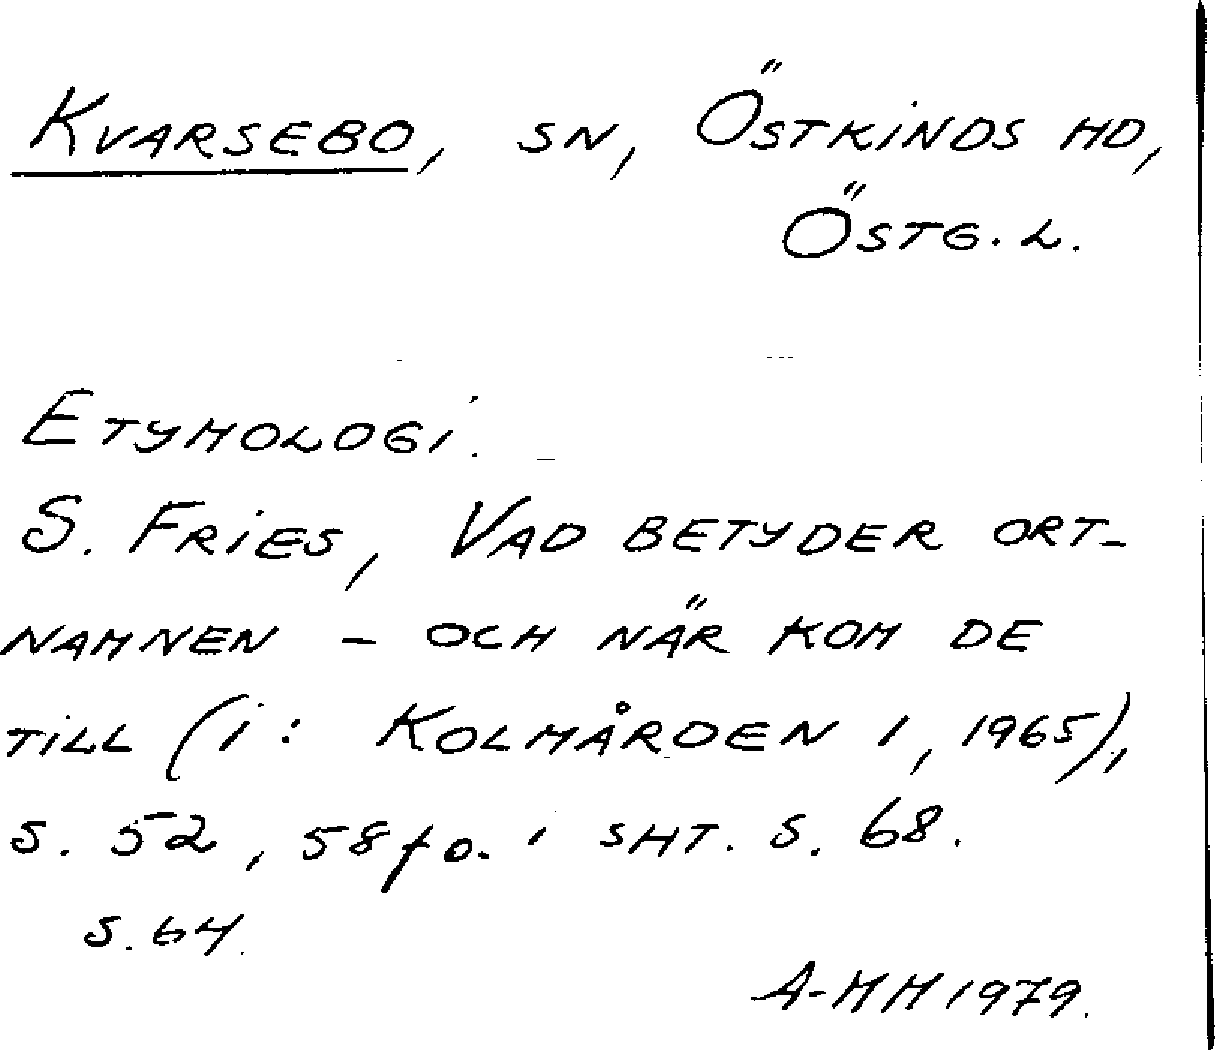 KVARSEBO, SN, ÖSTKINDS HD,
ÖSTG. L.
ETYMOLOGI.
S. FRIES, VAD BETYDER ORT-
NAMNEN - OCH NÄR KOM DE
TILL (I: KOLMÅRDEN 1, 1965),
S. 52, 58 fo. i SMT. S. 68.
S. 64.
A-MM 1979.